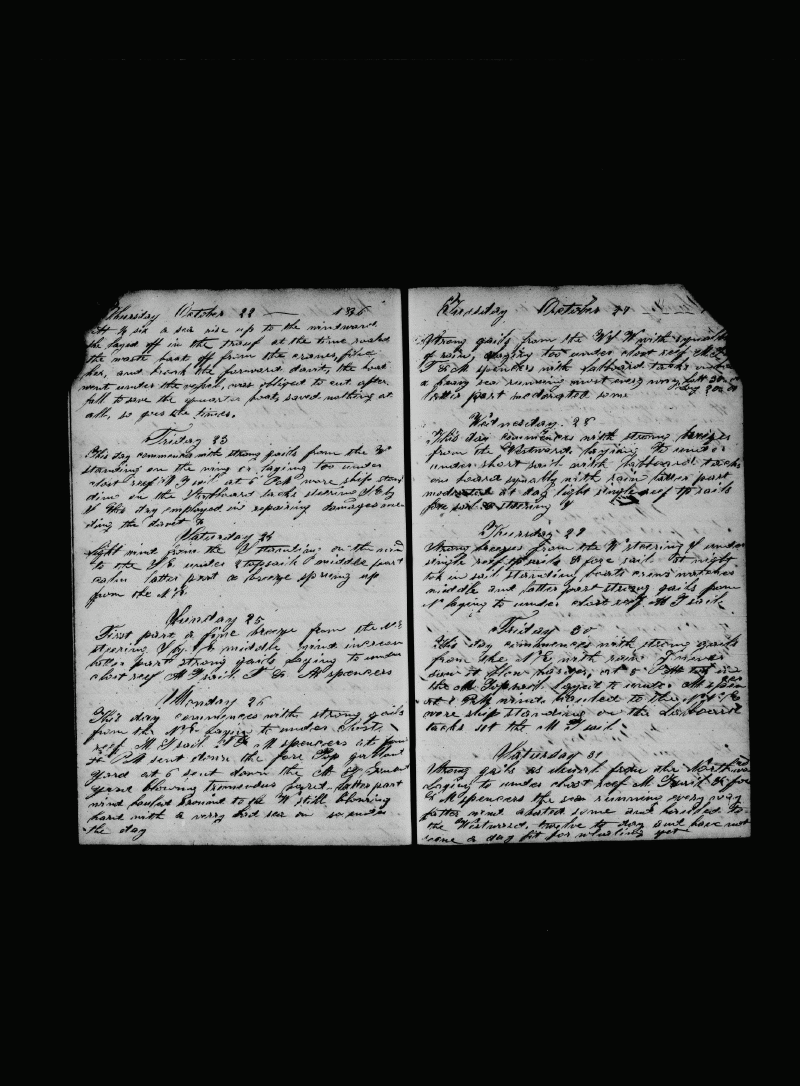 Thursday October 22 — 1835
At ½ six a sea rise up to the windward
she layed off in the trouf at the time
the waste boat off from the cranes,
her, and broak the forward davit, the boat
went under the vessel, was obliged to cut after
fall to save the quarter boat, saved nothing at
all, so goes the times.
Friday 23
This day commences with strong gails from the W
standing on the wing or laying too under
close reef M T sail at 6 P.M. wore ship stan
ding on the larboard tacks steering S E by
S this day employed in repairing damages men
ding the davit &
Saturday 24
Light wind from the S standing on the wind
to the S E under 2 topsails middle part
calm latter part a breeze springing up
from the N E
Sunday 25
First part a fine breeze from the N E
steering S by middle wind increas
latter part strong gails laying to under
close reef M T sail F & M spencers
Monday 26
This day commences with strong gails
from the N E laying to under close
reef M T sail & F & M spencers at four
P M sent down the fore Top gallant
yard at 6 sent down the M
yard blowing tremendus hard latter part
wind hauled around to the W still blowing
hard with a verry bad sea on so ends
the day
Tuesday October 27
Strong gails from the W S W with squalls
of rain, laying too under close reef M T
F & M spencers with larboard tacks
a heavy sea running most every way
latter part moderated some
Wednesday 28
This day commences with strong breezes
from the Westward laying to under
under short sail with larboard tacks
on board squally with rain latter part
moderated at day light single reef T sails
fore sail steering
Thursday 29
Strong breezes from the W steering S under
single reef T sails & fore sail at night
took in sail standing boats crews watches
middle and latter part strong gails from
N laying to under close reef M T sail
Friday 30
This day commences with strong gails
from the N E with rain
down to at 8 P M took in
the M Topsail layed to under M spen
at 1 P.M. wind hauled to the
wore ship standing on the larboard
tacks set the M T sail
Saturday 31
Strong gails as usual from the Northward
laying to under close reef M T sail & fore
& M spencers the sea running every way
latter wind abated some and hauled to
the Westward, twelve to day and have not
seen a day fit for whaling yet